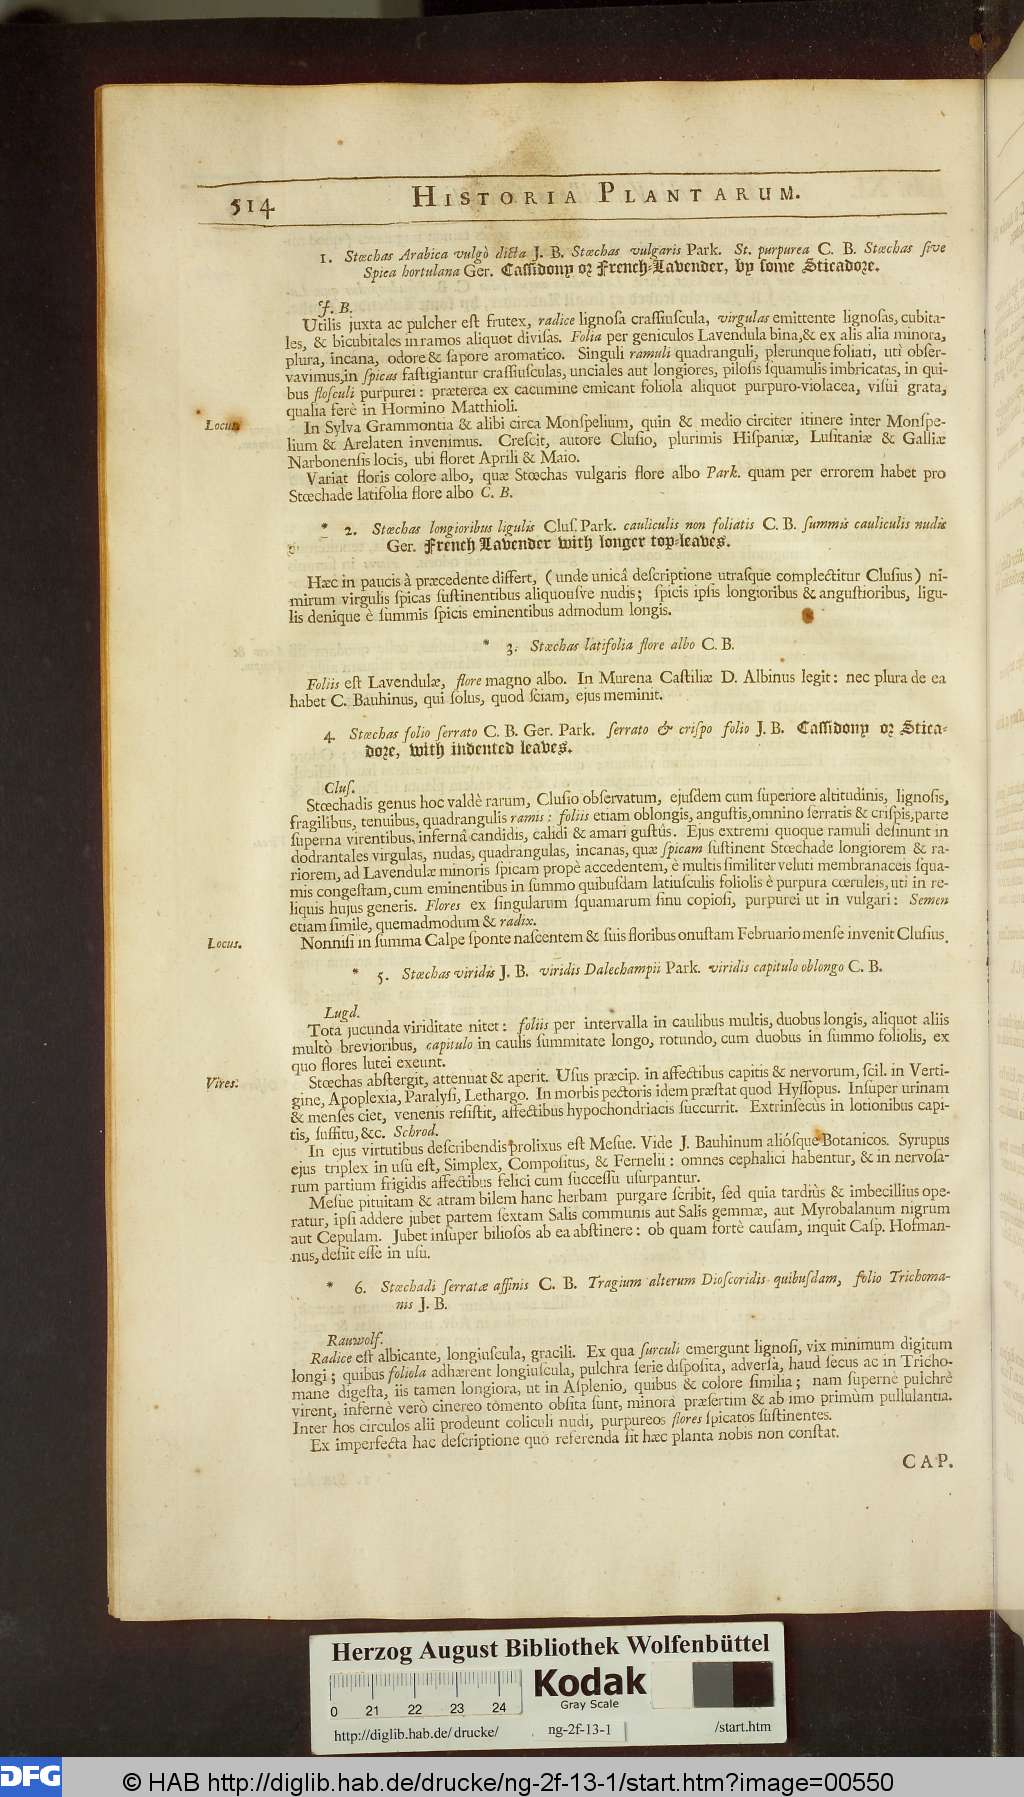 514 HISTORIA PLANTARUM.
1. Stœchas Arabica vulgò dicta J. B. Stœchas vulgaris Park. St. purpurea C. B. Stœchas ſive
Spica hortulana Ger. Caſſidony or French-Lavender, by ſome Sticadore.
J. B.
Utilis juxta ac pulcher eſt frutex, radice lignoſa craſſiuſcula, virgulas emittente lignoſas, cubita-
les, & bicubitales in ramos aliquot diviſas. Folia per geniculos Lavendula bina, & ex alis alia minora,
plura, incana, odore & ſapore aromatico. Singuli ramuli quadranguli, plerunque foliati, uti obſer-
vavimus, in ſpicas faſtigiantur craſſiuſculas, unciales aut longiores, piloſis ſquamulis imbricatas, in qui-
bus floſculi purpurei: præterea ex cacumine emicant foliola aliquot purpuro-violacea, viſui grata,
qualia ferè in Hormino Matthioli.
Locus.
In Sylva Grammontia & alibi circa Monſpelium, quin & medio circiter itinere inter Monſpe-
lium & Arelaten invenimus. Creſcit, autore Cluſio, plurimis Hiſpaniæ, Luſitaniæ & Galliæ
Narbonenſis locis, ubi floret Aprili & Maio.
Variat floris colore albo, quæ Stœchas vulgaris flore albo Park. quam per errorem habet pro
Stœchade latifolia flore albo C. B.
* 2. Stœchas longioribus ligulis Cluſ. Park. cauliculis non foliatis C. B. ſummis cauliculis nudis
Ger. French Lavender with longer top-leaves.
Hæc in paucis à præcedente differt, (unde unicâ deſcriptione utraſque complectitur Cluſius) ni-
mirum virgulis ſpicas ſuſtinentibus aliquouſve nudis; ſpicis ipſis longioribus & anguſtioribus, ligu-
lis denique è ſummis ſpicis eminentibus admodum longis.
* 3. Stœchas latifolia flore albo C. B.
Foliis eſt Lavendulæ, flore magno albo. In Murena Caſtiliæ D. Albinus legit: nec plura de ea
habet C. Bauhinus, qui ſolus, quod ſciam, ejus meminit.
4. Stœchas folio ſerrato C. B. Ger. Park. ſerrato & criſpo folio J. B. Caſſidony or Stica-
dore, with indented leaves.
Cluſ.
Stœchadis genus hoc valdè rarum, Cluſio obſervatum, ejuſdem cum ſuperiore altitudinis, lignoſis,
fragilibus, tenuibus, quadrangulis ramis: foliis etiam oblongis, anguſtis, omnino ſerratis & criſpis, parte
ſuperna virentibus, infernâ candidis, calidi & amari guſtûs. Ejus extremi quoque ramuli deſinunt in
dodrantales virgulas, nudas, quadrangulas, incanas, quæ ſpicam ſuſtinent Stœchade longiorem & ra-
riorem, ad Lavendulæ minoris ſpicam propè accedentem, è multis ſimiliter veluti membranaceis ſqua-
mis congeſtam, cum eminentibus in ſummo quibuſdam latiuſculis foliolis è purpura cœruleis, uti in re-
liquis hujus generis. Flores ex ſingularum ſquamarum ſinu copioſi, purpurei ut in vulgari: Semen
etiam ſimile, quemadmodum & radix.
Locus.
Nonniſi in ſumma Calpe ſponte naſcentem & ſuis floribus onuſtam Februario menſe invenit Cluſius.
* 5. Stœchas viridis J. B. viridis Dalechampii Park. viridis capitulo oblongo C. B.
Lugd.
Tota jucunda viriditate nitet: foliis per intervalla in caulibus multis, duobus longis, aliquot aliis
multò brevioribus, capitulo in caulis ſummitate longo, rotundo, cum duobus in ſummo foliolis, ex
quo flores lutei exeunt.
Vires.
Stœchas abſtergit, attenuat & aperit. Uſus præcip. in affectibus capitis & nervorum, ſcil. in Verti-
gine, Apoplexia, Paralyſi, Lethargo. In morbis pectoris idem præſtat quod Hyſſopus. Inſuper urinam
& menſes ciet, venenis reſiſtit, affectibus hypochondriacis ſuccurrit. Extrinſecus in lotionibus capi-
tis, ſuffitu, &c. Schrod.
In ejus virtutibus deſcribendis prolixus eſt Meſue. Vide J. Bauhinum alióſque Botanicos. Syrupus
ejus triplex in uſu eſt, Simplex, Compoſitus, & Fernelii: omnes cephalici habentur, & in nervoſa-
rum partium frigidis affectibus felici cum ſucceſſu uſurpantur.
Meſue pituitam & atram bilem hanc herbam purgare ſcribit, ſed quia tardiùs & imbecillius ope-
ratur, ipſi addere jubet partem ſextam Salis communis aut Salis gemmæ, aut Myrobalanum nigrum
aut Cepulam. Jubet inſuper bilioſos ab ea abſtinere: ob quam fortè cauſam, inquit Caſp. Hofman-
nus, deſiit eſſe in uſu.
* 6. Stœchadi ſerratæ affinis C. B. Tragium alterum Dioſcoridis quibuſdam, folio Trichoma-
nis J. B.
Rauwolf.
Radice eſt albicante, longiuſcula, gracili. Ex qua ſurculi emergunt lignoſi, vix minimum digitum
longi; quibus foliola adhærent longiuſcula, pulchra ſerie diſpoſita, adverſa, haud ſecus ac in Tricho-
mane digeſta, iis tamen longiora, ut in Aſplenio, quibus & colore ſimilia; nam ſupernè pulchrè
virent, infernè verò cinereo tomento obſita ſunt, minora præſertim & ab imo primùm pullulantia.
Inter hos circulos alii prodeunt coliculi nudi, purpureos flores ſpicatos ſuſtinentes.
Ex imperfecta hac deſcriptione quo referenda ſit hæc planta nobis non conſtat.
CAP.
Herzog August Bibliothek Wolfenbüttel
0 21 22 23 24
Kodak
Gray Scale
http://diglib.hab.de/drucke/ ng-2f-13-1 /start.htm
DFG © HAB http://diglib.hab.de/drucke/ng-2f-13-1/start.htm?image=00550